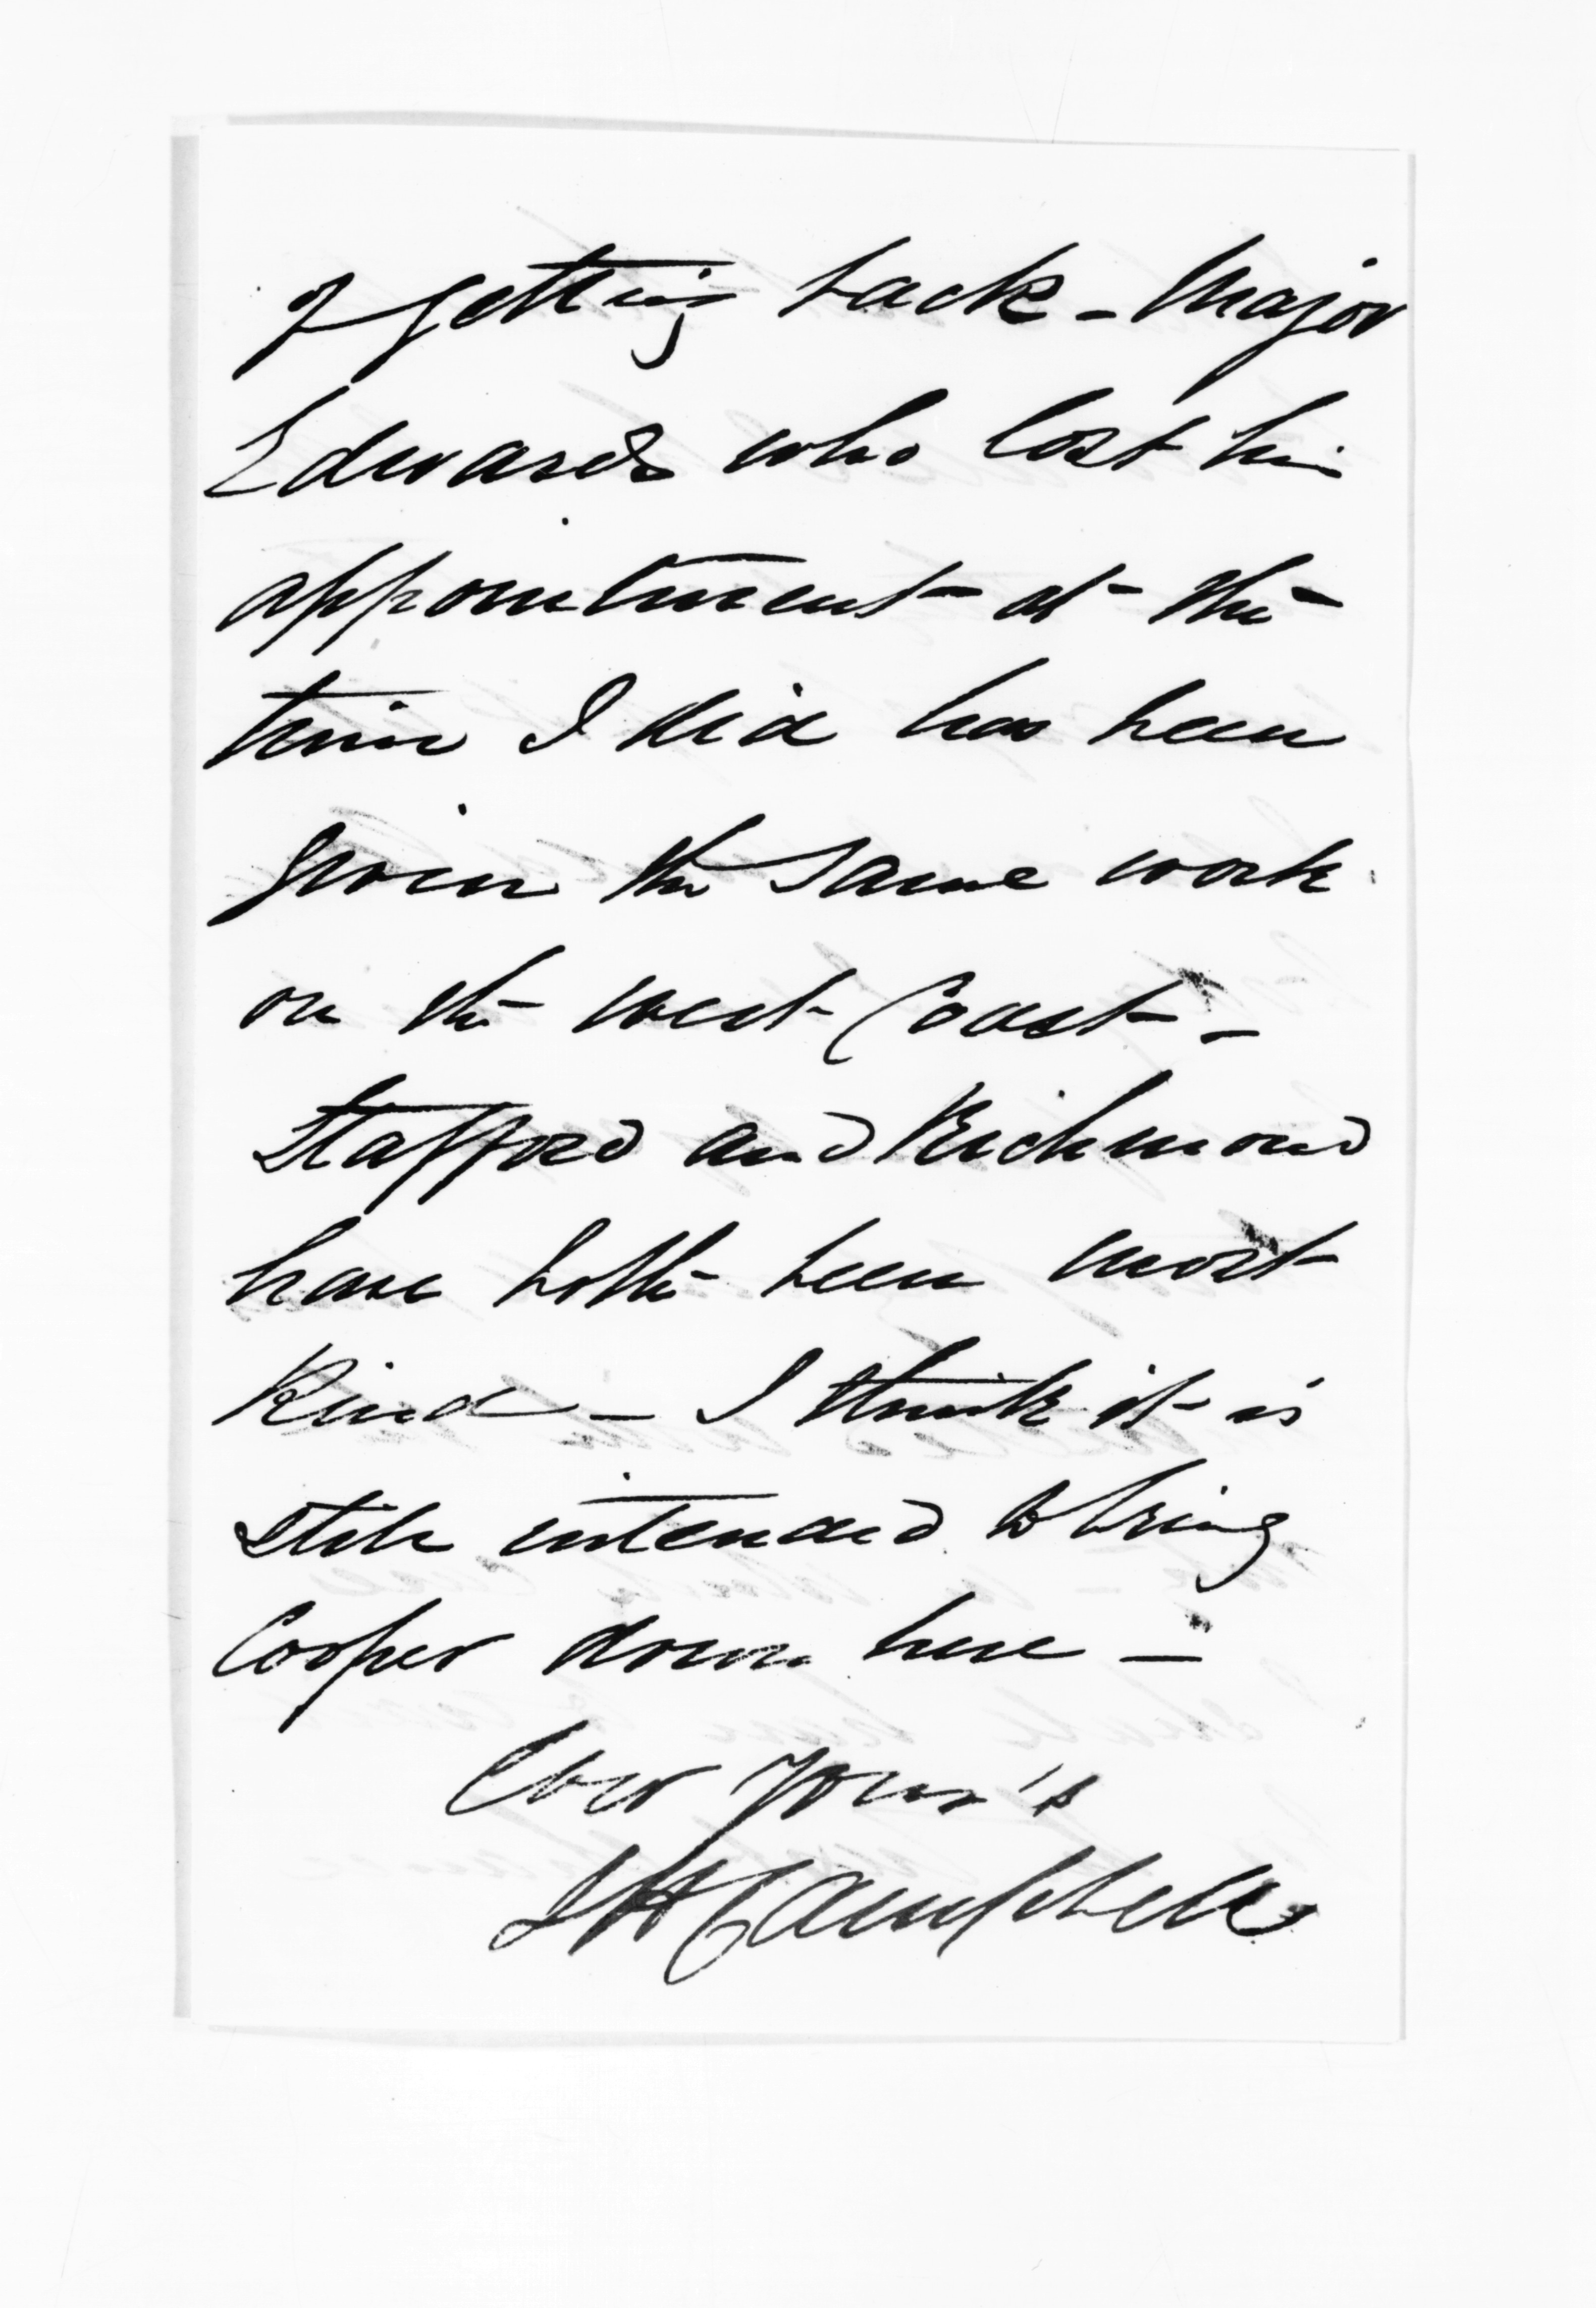 of getting back - Major
Edwards who lost his
appointment at the
time I did has been
given the same work
on the west Coast -
Stafford and Richmond
have both been most
kind - I think it is
still intended to bring
Cooper down here -
Ever your's
H Campbell